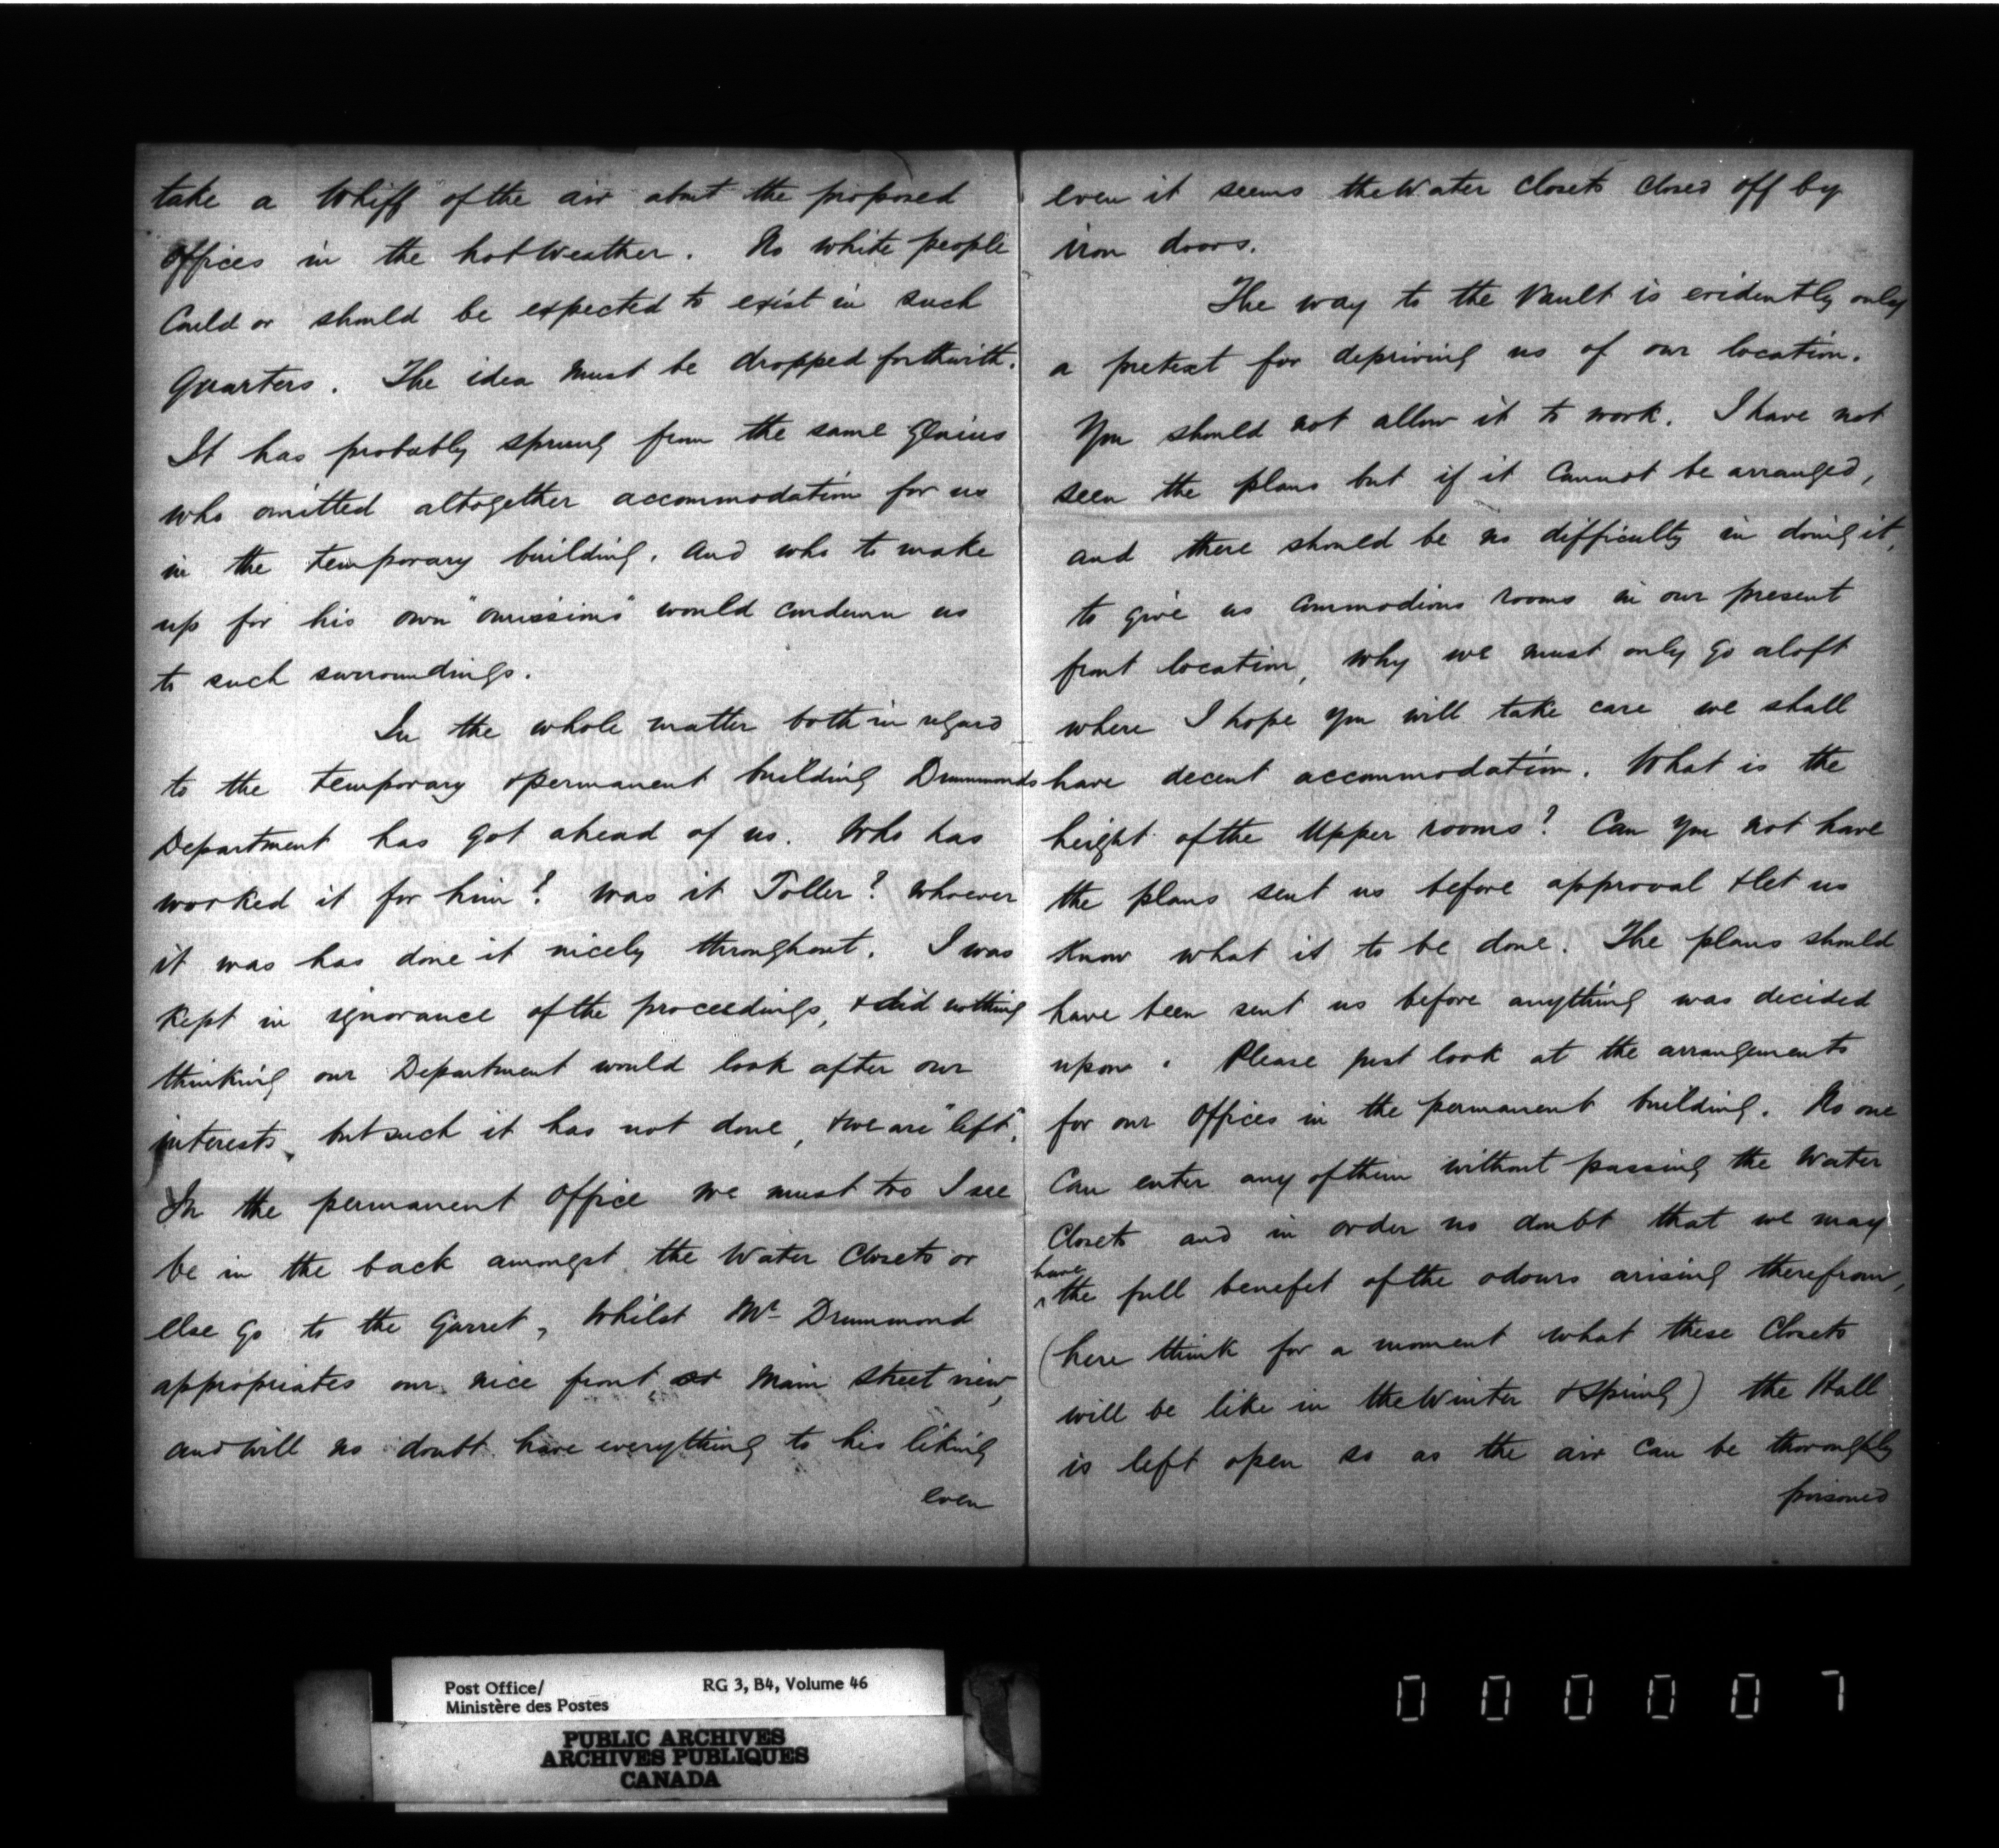 take a Whiff of the air about the proposed
Offices in the hot Weather. No white people
Could or should be expected to exist in such
Quarters. The idea must be dropped forthwith.
It has probably sprung from the same genius
who omitted altogether accommodation for us
in the temporary building. And who to make
up for his own "omissions" would condemn us
to such surroundings.
In the whole matter both in regard
to the temporary & permanent building Drummonds
Department has got ahead of us. Who has
worked it for him? Was it Toller? Whoever
it was has done it nicely throughout. I was
Kept in ignorance of the proceedings, & did nothing
thinking our Department would look after our
interests, but such it has not done, & we are "left".
In the permanent Office we must too I see
be in the back amongst the Water Closets or
else go to the Garret, Whilst Mr Drummond
appropriates our nice front or Main Street view,
and will no doubt have everything to his liking
even
even it seems the Water Closets closed off by
iron doors.
The way to the Vault is evidently only
a pretext for depriving us of our location.
You should not allow it to work. I have not
seen the plans but if it cannot be arranged,
and there should be no difficulty in doing it,
to give us commodious rooms in our present
front location, why we must only go aloft
where I hope you will take care we shall
have decent accommodation. What is the
height of the Upper rooms? Can you not have
the plans sent us before approval & let us
Know what it to be done. The plans should
have been sent us before anything was decided
upon. Please just look at the arrangements
for our Offices in the permanent building. No one
Can enter any of them without passing the Water
Closets and in order no doubt that we may
have
^ the full benefit of the odours arising therefrom,
(here think for a moment what these Closets
will be like in the Winter & Spring) the Hall
is left open so as the air can be thoroughly
poisoned
Post Office/ RG 3, B4, Volume 46
Ministère des Postes
PUBLIC ARCHIVES
ARCHIVES PUBLIQUES
CANADA
000007